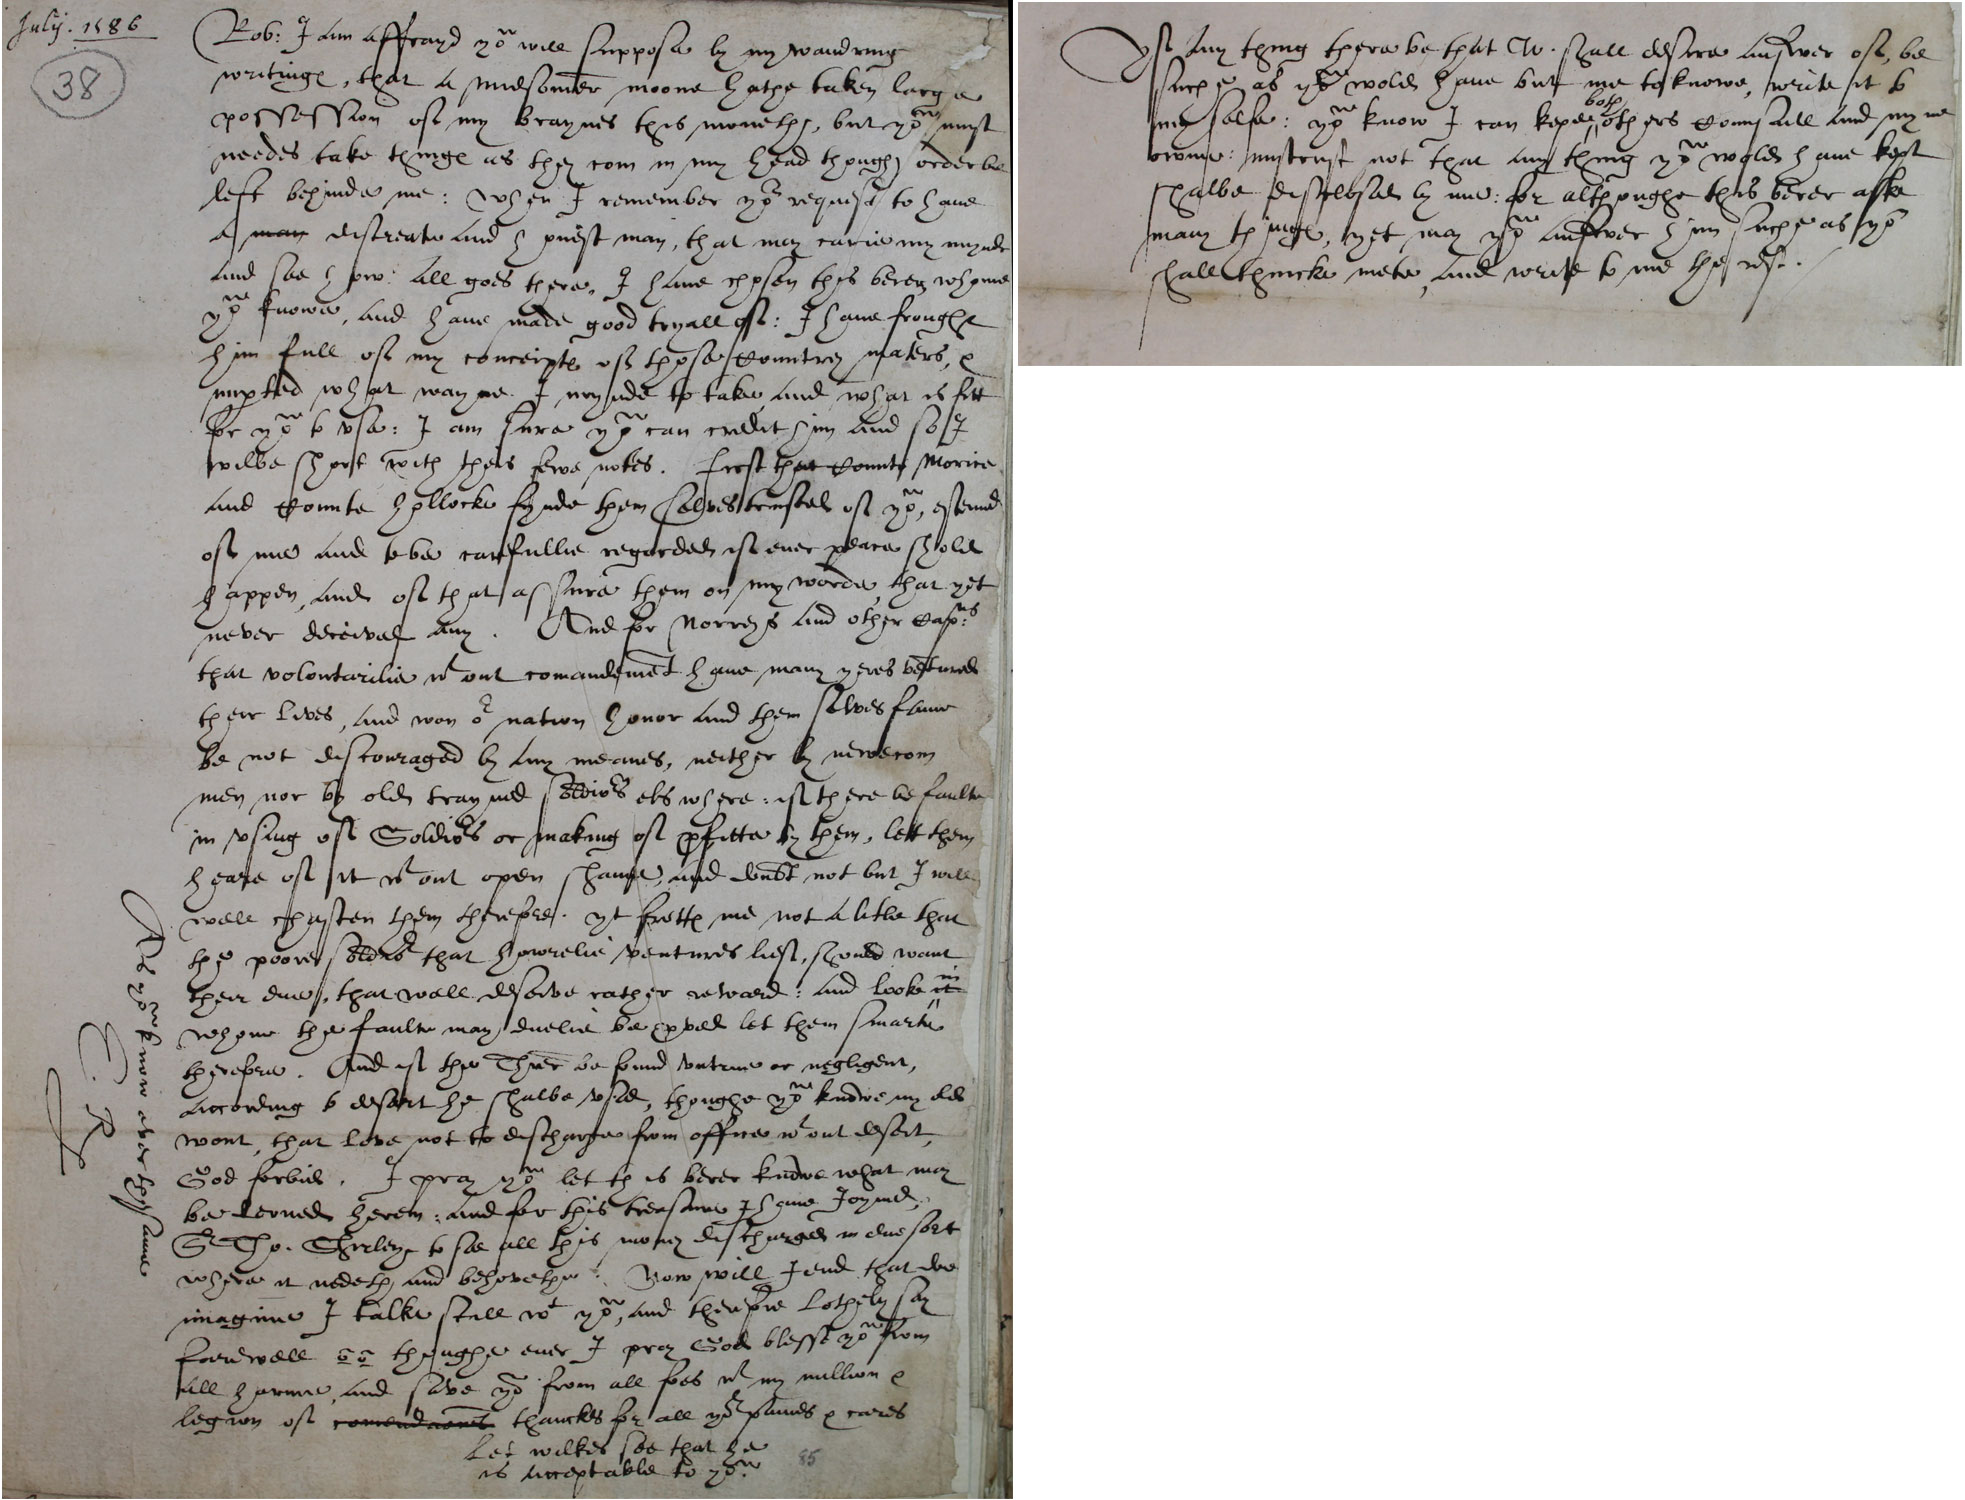 July. 1586
38
Rob: I am affrayd yow will suppose by my wandring
writinge, that a midsomer moone hathe taken large
possession of my braynes this moneth, but yow must
needes take thinge as they com in my head though order be
left behinde me: When I remember yor request to have
a man discreate and honest man, that may carie my mynde
and see how all goes there, I have chosen this berer whome
yow knowe, and have made good tryall of: I have fraught
him full of my conceipte of those Countrey maters, &
imparted what way me I mynde to take, and what is fitt
for yow to vse: I am sure yow can credit him and so I
wilbe short with theis fewe notes. First that Counte Morice
and Counte Hollocke fynde them selves trusted of yow, estemed
of me and to be carefullie regarded if ever peace shold
happen, and of that assure them on my worde, that yet
never deceived any. And for Norreys and other Capns
that voluntarilie wt out comandement have many yeres ventured
their lives, and won or nation honor and them selves fame
be not discouraged by any meanes, neither by newecom
men nor by olde trayned soldiors els where: if there be faulte
in vsing of Soldiors or making of pfitte by them, lett them
heare of it wt out open shame, and doubt not but I will
well chasten them therefore. yt frette me not a litle that
the poore soldiors that howrelie ventures lief, should want
their due, that well deserve rather reward: and looke in
it
whome the faulte may duelie be pved let them smarte
therefore. And if the Threr be found vntrue or negligent,
according to desart he shalbe vsed, thoughe yow knowe my olde
wont, that love not to discharge from office wt out desert,
God forbid. I pray yow let this berer knowe what may
be lerned herein: and for this treasure I have Joyned,
Sr Tho. Shirley to see all this money discharged in due sort
where it nedeth and behoveth. Now will I end that doe
imagine I talke still wt yow, and therefore lothely say
farewell ōō thoughe ever I pray God blesse yow from
all harme, and save yow from all foes wt my million &
legion of comendacons thanckes for all yor paines & cares
Let wilkes see that he
is acceptable to yow
85
As yow know ever the same
E. R
Yf any thing there be that W. shall desire answer of, be
suche as yow wold have but me to knowe, write it to
my selfe: yow know I can kepe both others Counsaile and myne
owne: mistrust not that any thing yow wold have kept
shalbe disclosed by me: for althoughe this berer aske
many thinge, yet may yow answer him suche as yow
shall thincke mete, and write to me the rest.